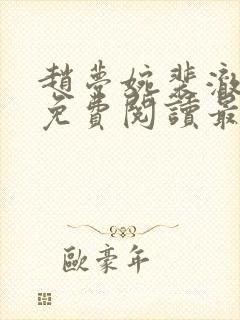 趙夢婉裴澈
免費閱讀最
歐豪年